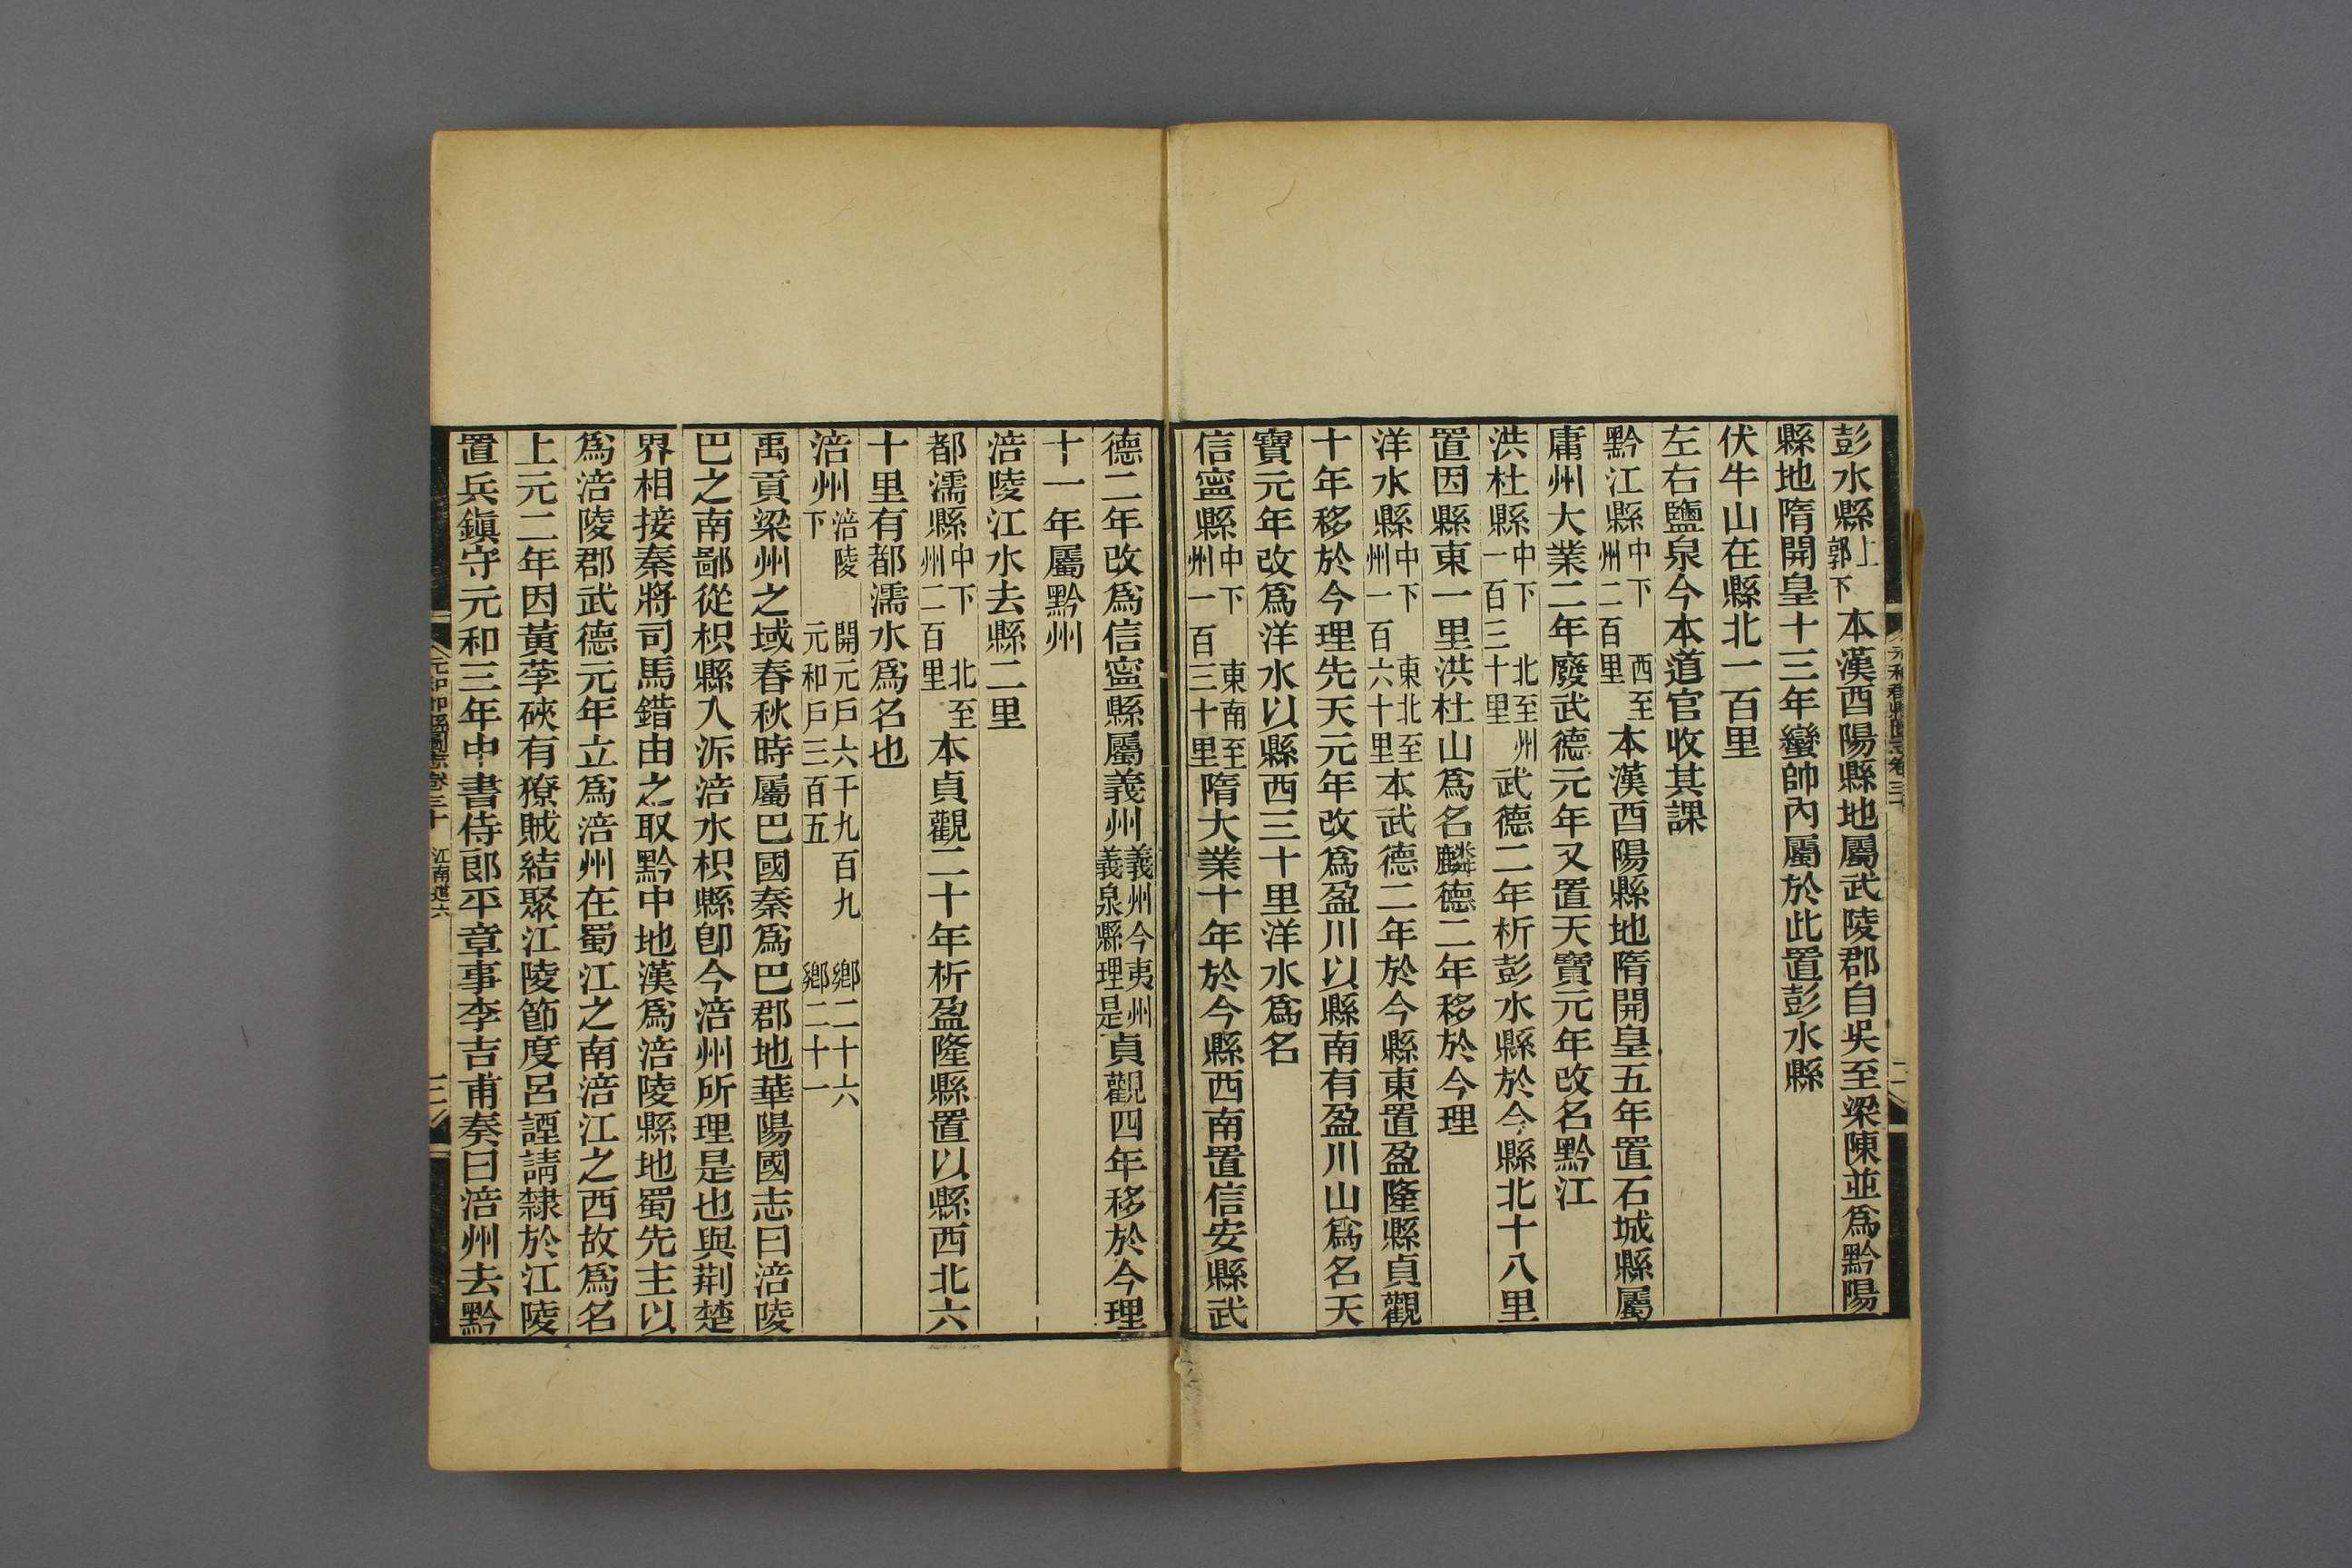 彭水縣上郭下本漢酉陽縣地屬武陵郡自吳至梁陳並爲黔陽
縣地隋開皇十三年蠻帥內屬於此置彭水縣
伏牛山在縣北一百里
左右鹽泉今本道官收其課
黔江縣中下西至州二百里本漢酉陽縣地隋開皇五年置石城縣屬
庸州大業二年廢武德元年又置天寶元年改名黔江
洪杜縣中下北至州一百三十里武德二年析彭水縣於今縣北十八里
置因縣東一里洪杜山爲名麟德二年移於今理
洋水縣中下東北至州一百六十里本武德二年於今縣東置盈隆縣貞觀
十年移於今理先天元年改爲盈川以縣南有盈川山爲名天
寶元年改爲洋水以縣西三十里洋水爲名
信寧縣中下東南至州一百三十里隋大業十年於今縣西南置信安縣武
德二年改爲信寧縣屬義州義州今夷州義泉縣理是貞觀四年移於今理
十一年屬黔州
涪陵江水去縣二里
都濡縣中下北至州二百里本貞觀二十年析盈隆縣置以縣西北六
十里有都濡水爲名也
涪州涪陵下開元戶六千九百九鄉二十六元和戶三百五鄉二十一
禹貢梁州之域春秋時屬巴國秦爲巴郡地華陽國志曰涪陵
巴之南鄙從枳縣入泝涪水枳縣卽今涪州所理是也與荆楚
界相接秦將司馬錯由之取黔中地漢爲涪陵縣地蜀先主以
爲涪陵郡武德元年立爲涪州在蜀江之南涪江之西故爲名
上元二年因黃莩硤有獠賊結聚江陵節度呂諲請隸於江陵
置兵鎮守元和三年中書侍郎平章事李吉甫奏曰涪州去黔
元和郡縣圖志卷三十 江南道六 三